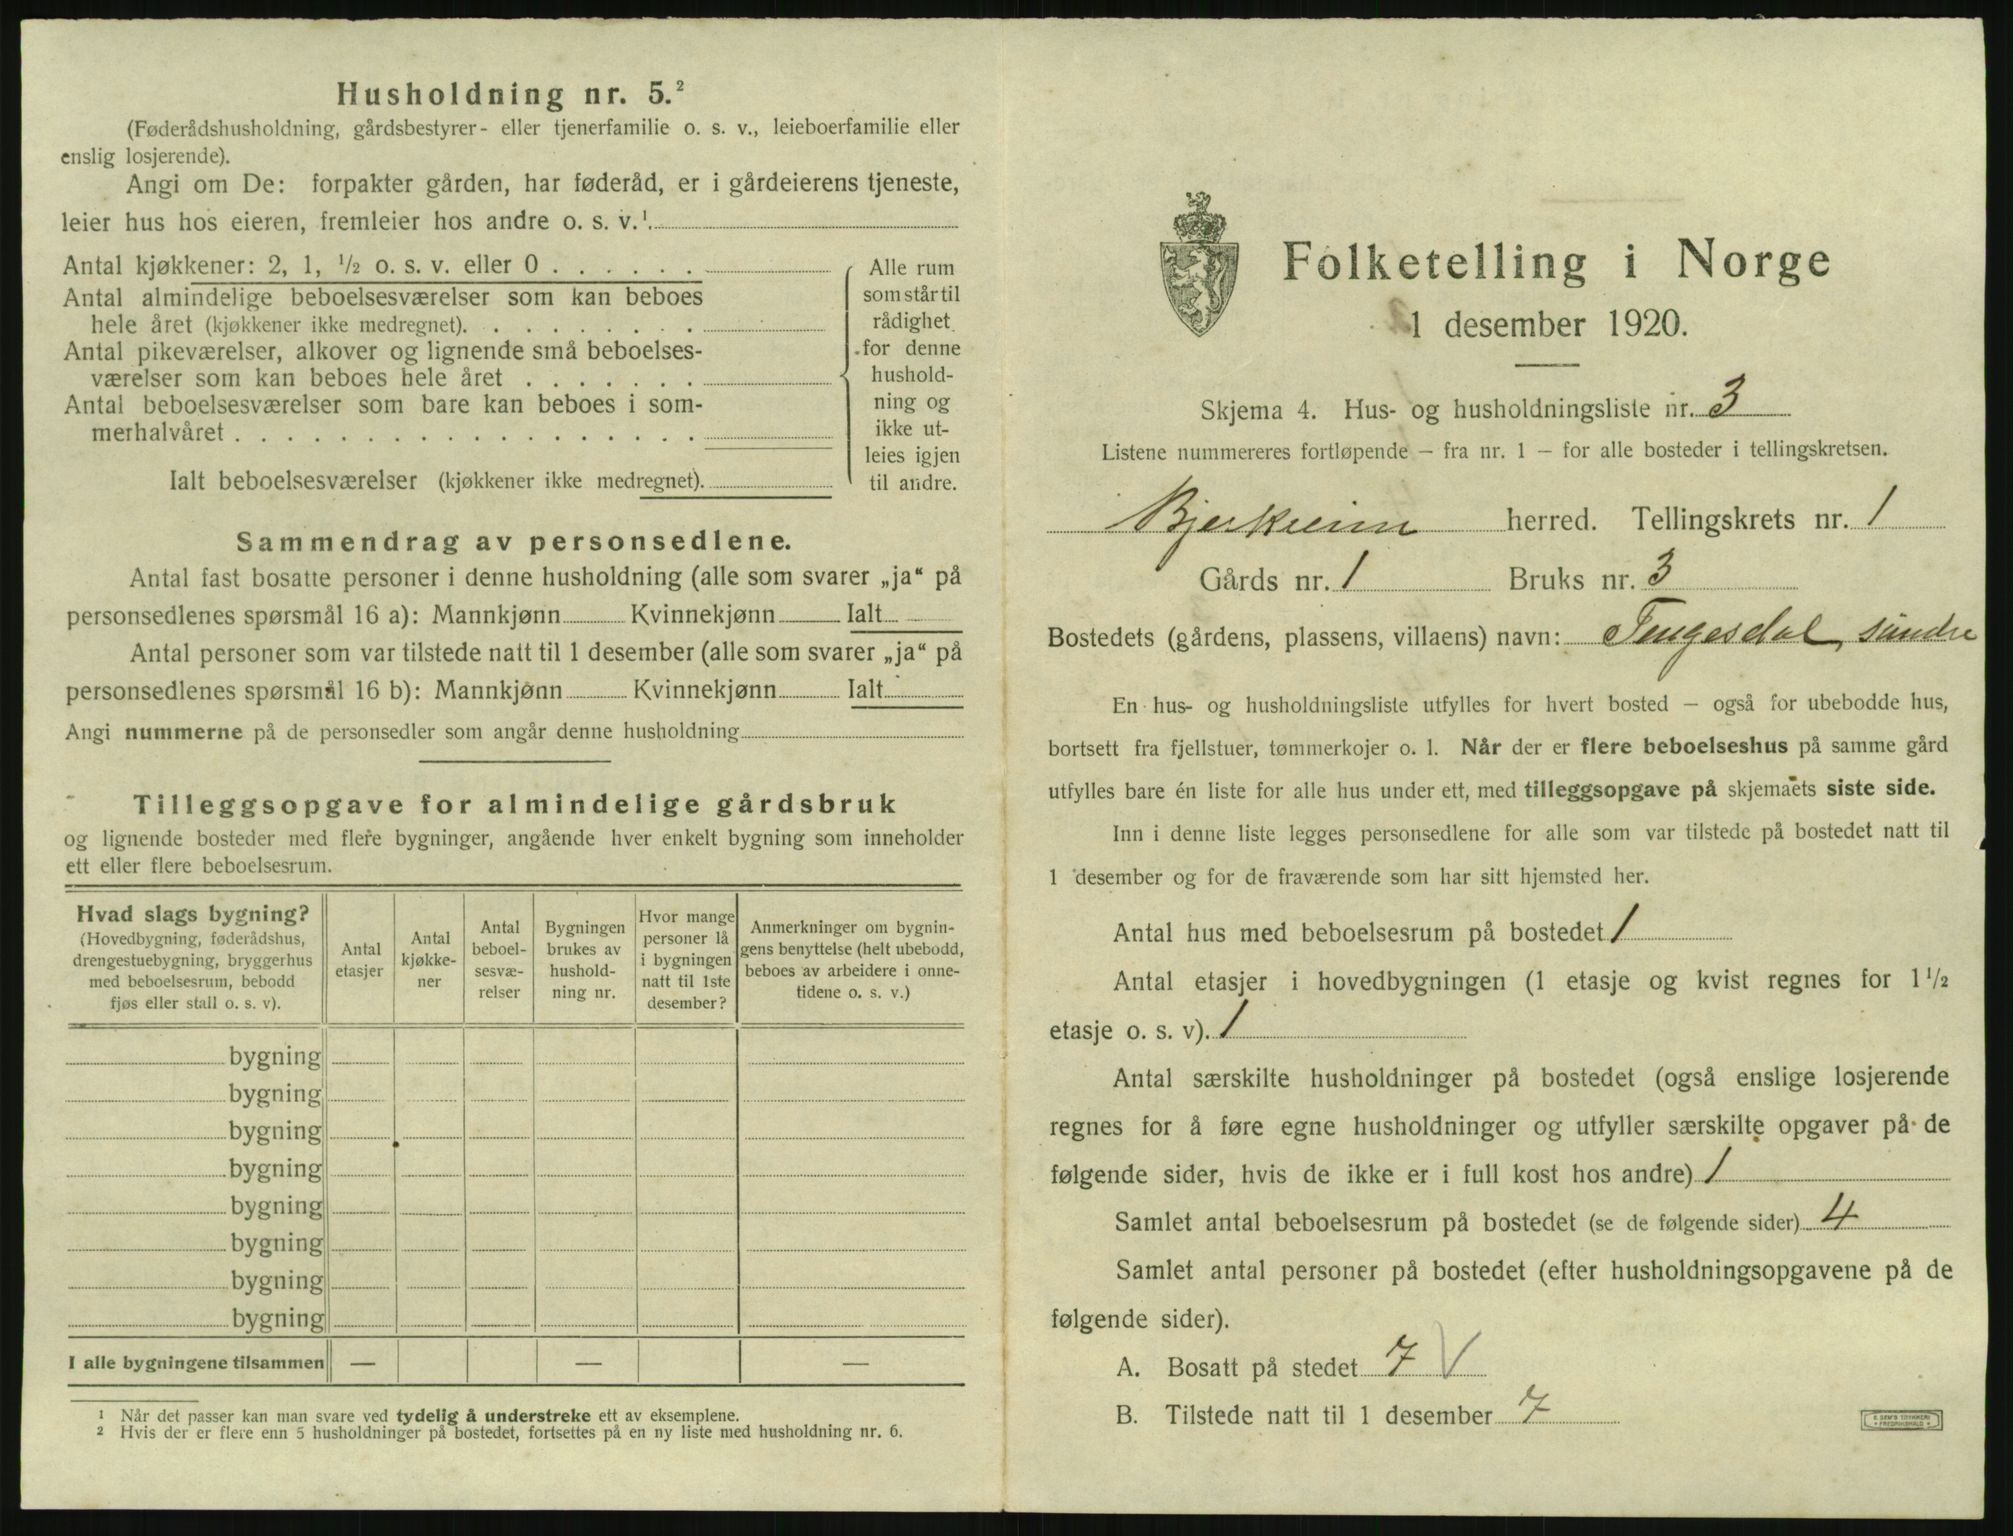 Husholdning nr. 5.²
(Føderådshusholdning, gårdsbestyrer- eller tjenerfamilie o. s. v., leieboerfamilie eller
enslig losjerende).
Angi om De: forpakter gården, har føderåd, er i gårdeierens tjeneste,
leier hus hos eieren, fremleier hos andre o. s. v.¹
Antal kjøkkener: 2, 1, ½ o. s. v. eller 0 . . . . . .
Antal almindelige beboelsesværelser som kan beboes
hele året (kjøkkener ikke medregnet). . . . . . . . .
Antal pikeværelser, alkover og lignende små beboelses-
værelser som kan beboes hele året . . . . . . .
Antal beboelsesværelser som bare kan beboes i som-
merhalvåret . . . . . . . . . . . . . . . . . .
Ialt beboelsesværelser (kjøkkener ikke medregnet).
Alle rum
som står til
rådighet
for denne
hushold-
ning og
ikke ut-
leies igjen
til andre.
Sammendrag av personsedlene.
Antal fast bosatte personer i denne husholdning (alle som svarer „ja“ på
personsedlenes spørsmål 16 a): Mannkjønn Kvinnekjønn Ialt
Antal personer som var tilstede natt til 1 desember (alle som svarer „ja“ på
personsedlenes spørsmål 16 b): Mannkjønn Kvinnekjønn Ialt
Angi nummerne på de personsedler som angår denne husholdning
Tilleggsopgave for almindelige gårdsbruk
og lignende bosteder med flere bygninger, angående hver enkelt bygning som inneholder
ett eller flere beboelsesrum.
Hvad slags bygning?
(Hovedbygning, føderådshus,
drengestuebygning, bryggerhus
med beboelsesrum, bebodd
fjøs eller stall o. s. v).
Antal
etasjer
Antal
kjøkke-
ner
Antal
beboel-
sesvæ-
relser
Bygningen
brukes av
hushold-
ning nr.
Hvor mange
personer lå
i bygningen
natt til 1ste
desember?
Anmerkninger om bygnin-
gens benyttelse (helt ubebodd,
beboes av arbeidere i onne-
tidene o. s. v.)
bygning
bygning
bygning
bygning
bygning
bygning
bygning
bygning
I alle bygningene tilsammen — — —
¹ Når det passer kan man svare ved tydelig å understreke ett av eksemplene.
² Hvis der er flere enn 5 husholdninger på bostedet, fortsettes på en ny liste med husholdning nr. 6.
Folketelling i Norge
1 desember 1920.
Skjema 4. Hus- og husholdningsliste nr. 3
Listene nummereres fortløpende — fra nr. 1 — for alle bosteder i tellingskretsen.
Bjerkreim herred. Tellingskrets nr. 1
Gårds nr. 1 Bruks nr. 3
Bostedets (gårdens, plassens, villaens) navn: Tengesdal, søndre
En hus- og husholdningsliste utfylles for hvert bosted — også for ubebodde hus,
bortsett fra fjellstuer, tømmerkojer o. l. Når der er flere beboelseshus på samme gård
utfylles bare én liste for alle hus under ett, med tilleggsopgave på skjemaets siste side.
Inn i denne liste legges personsedlene for alle som var tilstede på bostedet natt til
1 desember og for de fraværende som har sitt hjemsted her.
Antal hus med beboelsesrum på bostedet 1
Antal etasjer i hovedbygningen (1 etasje og kvist regnes for 1½
etasje o. s. v). 1
Antal særskilte husholdninger på bostedet (også enslige losjerende
regnes for å føre egne husholdninger og utfyller særskilte opgaver på de
følgende sider, hvis de ikke er i full kost hos andre) 1
Samlet antal beboelsesrum på bostedet (se de følgende sider) 4
Samlet antal personer på bostedet (efter husholdningsopgavene på de
følgende sider).
A. Bosatt på stedet 7 V
B. Tilstede natt til 1 desember 7
E. SEM'S TRYKKERI
• FREDRIKSHALD •